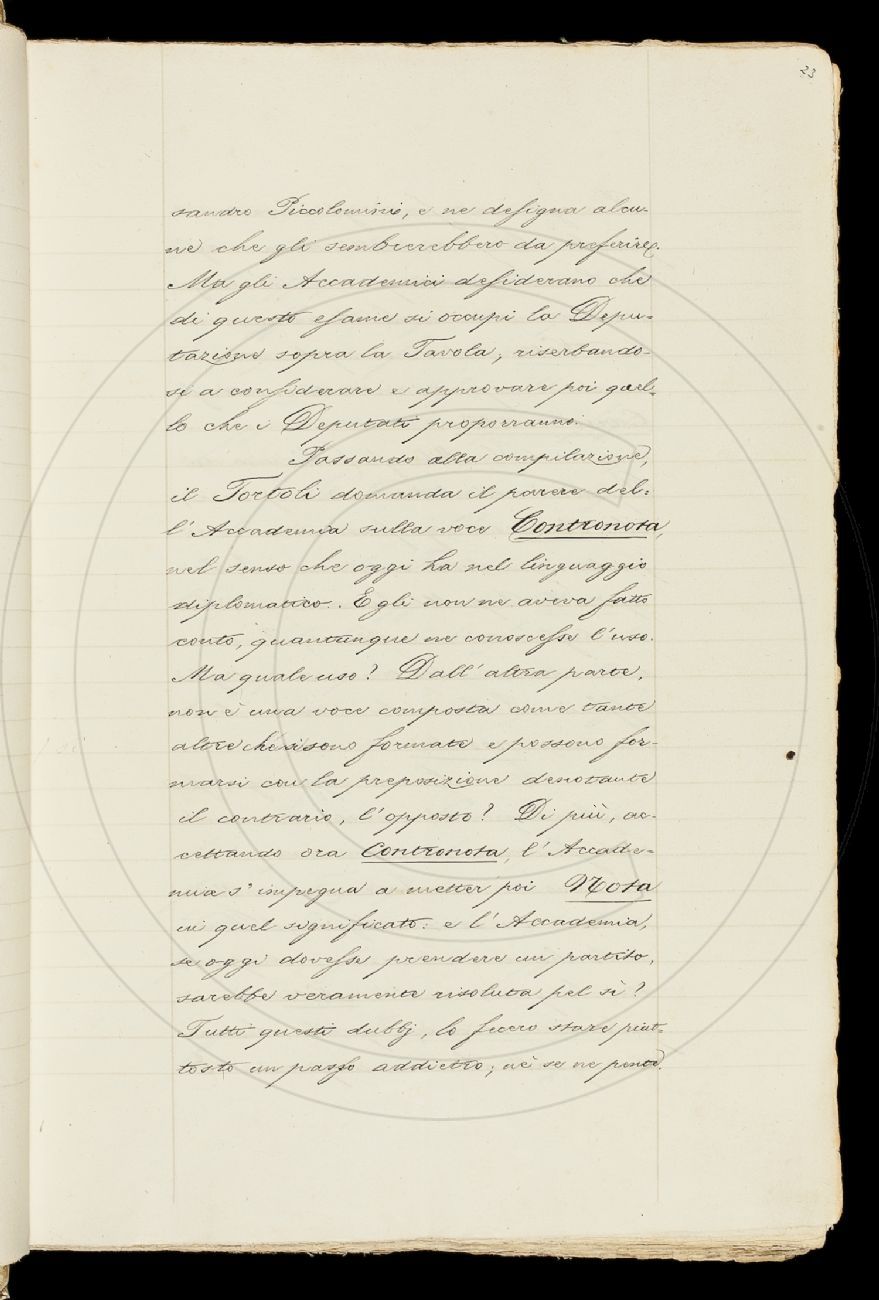 23
sandro Piccolomini, e ne designa alcu-
ne che gli sembrerebbero da preferire.
Ma gli Accademici desiderano che
di questo esame si occupi la Depu-
tazione sopra la Tavola, riserbando-
si a considerare e approvare poi quel-
lo che i Deputati proporranno.
Passando alla compilazione,
il Tortoli domanda il parere del-
l'Accademia sulla voce Contronota,
nel senso che oggi ha nel linguaggio
diplomatico. Egli non ne aveva fatto
conto, quantunque ne conoscesse l'uso.
Ma quale uso? Dall'altra parte,
non è una voce composta come tante
altre che si sono formate e possono for-
marsi con la preposizione denotante
il contrario, l'opposto? Di più, ac-
cettando ora Contronota, l'Accade-
mia s'impegna a metter poi Nota
in quel significato: e l'Accademia,
se oggi dovesse prendere un partito,
sarebbe veramente risoluta pel sì?
Tutti questi dubbj, lo fecero stare piut-
tosto un passo addietro; nè se ne pente.